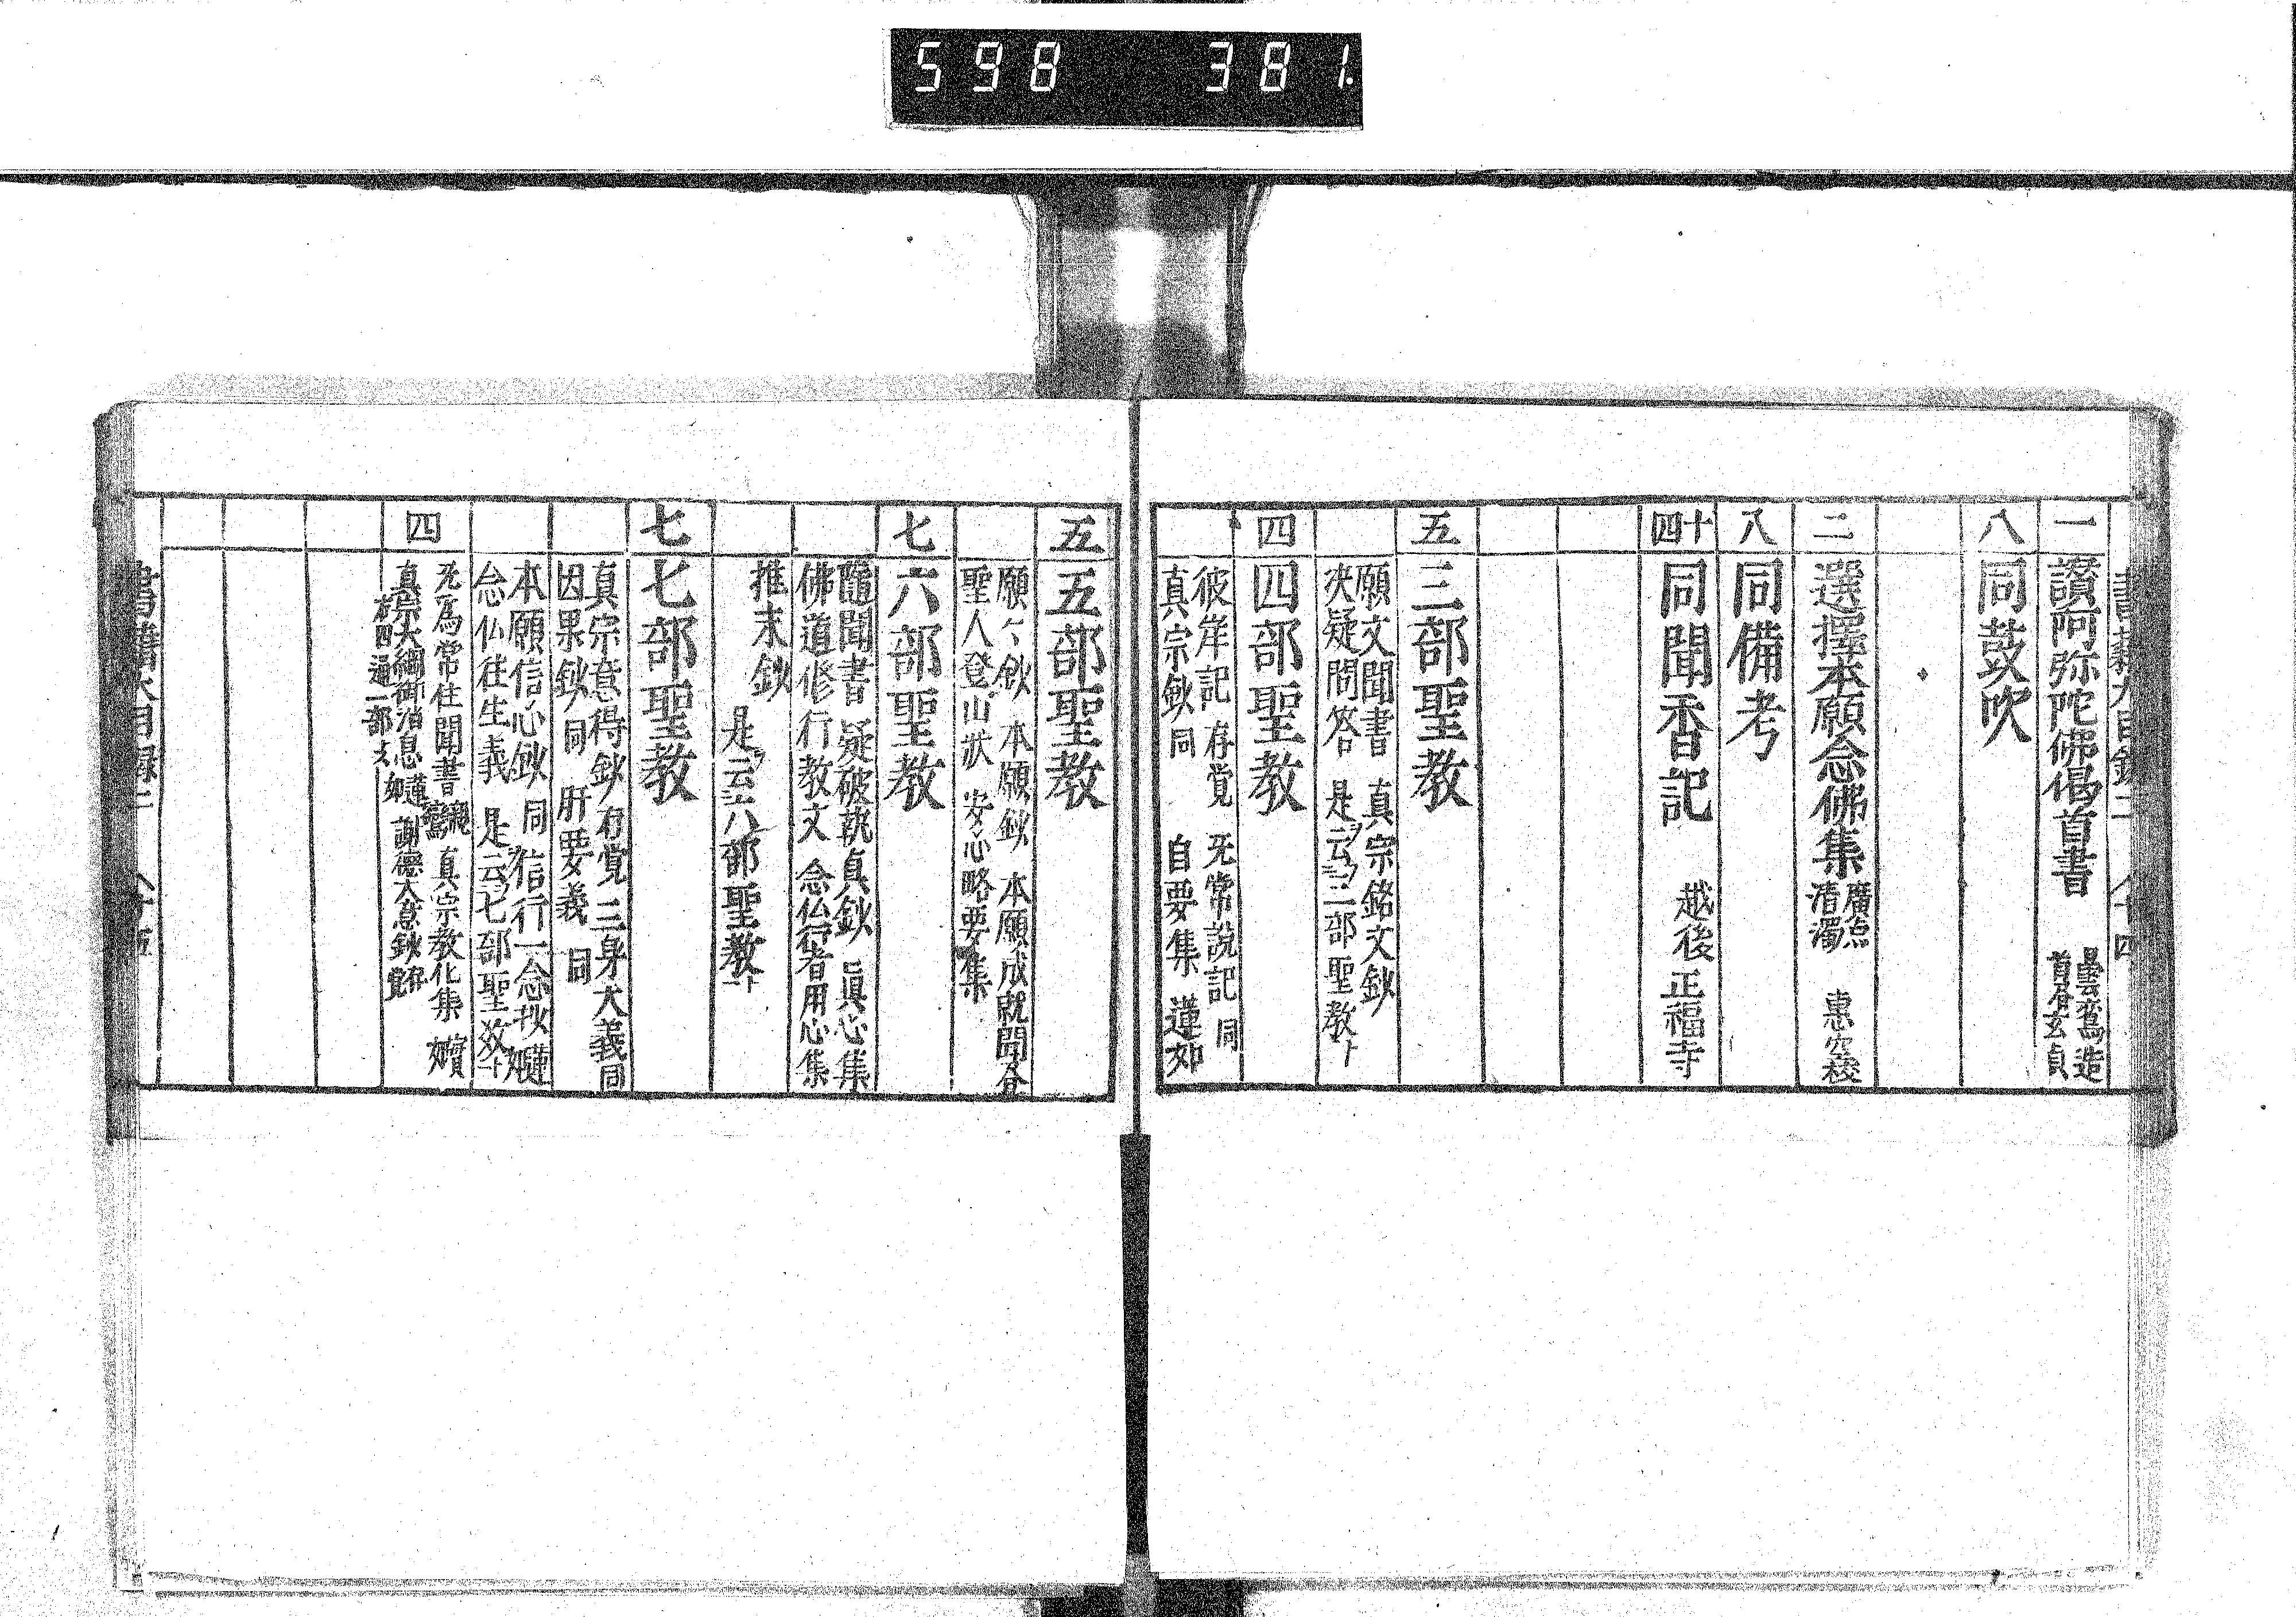 598 381.
一 讃阿弥陀佛偈首書 曇鸞造
首屋玄貞
八 同鼓吹
二 選擇本願念佛集 廣点
清濁 惠空校
八 同備考
十四 同聞香記 越後 正福寺
五 三部聖教
願文聞書 真宗銘文鈔
决疑問答 是云三部聖教ト
四 四部聖教
彼岸記 存覚 无常説記 同
真宗鈔 同 自要集 蓮如
五 五部聖教
願々鈔 本願鈔 本願成就聞
聖人登山狀 安心略要集
七 六部聖教
隨聞書 疑破執真鈔 真心集
佛道修行教文 念仏行者用心集
推末鈔
是云六部聖教ト
七 七部聖教
真宗意得鈔 存覚 三身大義 同
因果鈔 同 肝要義 同
本願信心鈔 同 信行一念抄 蓮如
念仏往生義 是云七部聖教ト
四 无為常住聞書 親鸞 真宗教化集 實如
真宗大綱御消息 蓮如 謝德大意鈔
右四通一部
書籍大目録二